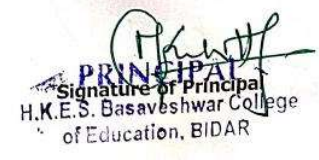 PRINCIPAL
Signature of Principal
H.K.E.S. Basaveshwar College
of Education, BIDAR